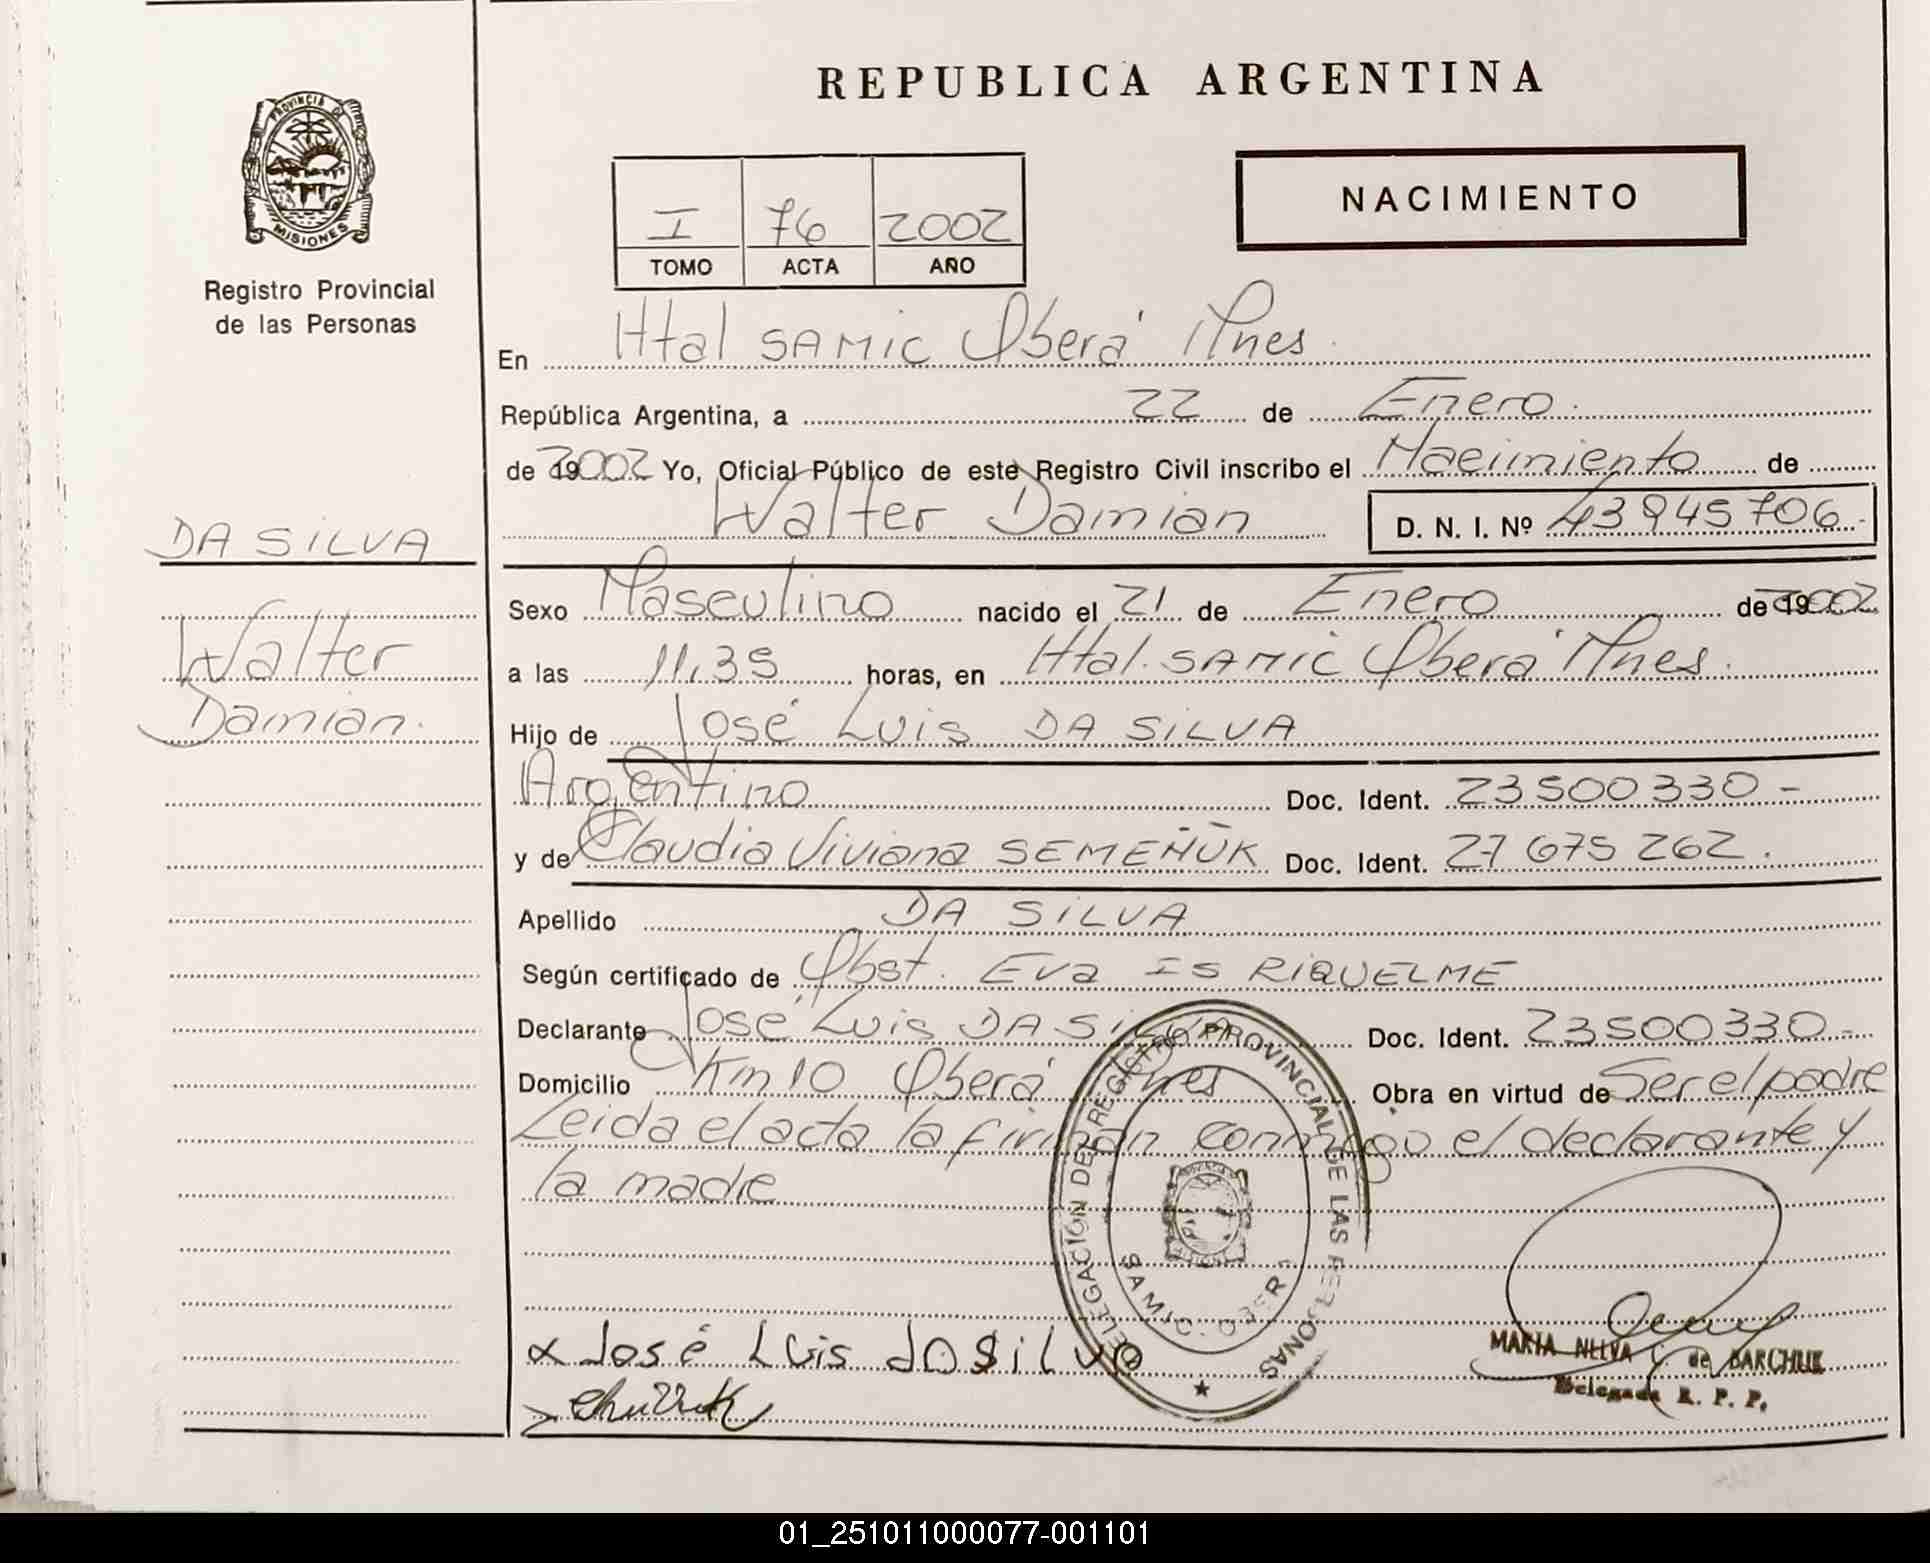 REPUBLICA ARGENTINA
PROVINCIA DE
MISIONES
Registro Provincial
de las Personas
I 76 2002
TOMO ACTA AÑO
NACIMIENTO
En Htal SAMIC Oberá Mnes
República Argentina, a 22 de Enero
de 2002 Yo, Oficial Público de este Registro Civil inscribo el Nacimiento de
Walter Damian D. N. I. Nº 43945706
DA SILVA
Walter
Damian.
Sexo Masculino nacido el 21 de Enero de 2002
a las 11,35 horas, en Htal. SAMIC Oberá Mnes.
Hijo de José Luis DA SILVA
Argentino Doc. Ident. 23500330 -
y de Claudia Viviana SEMEÑUK Doc. Ident. 27675262.
Apellido DA SILVA
Según certificado de Obst. Eva IS RIQUELME
Declarante José Luis DA SILVA Doc. Ident. 23500330 -
Domicilio Km 10 Oberá Mnes Obra en virtud de Ser el padre
Leida el acta la firman conmigo el declarante y
la madre
DELEGACIÓN DEL REGISTRO PROVINCIAL DE LAS PERSONAS
SAMIC. OBERA
x José Luis da Silva
MARIA de BARCHUK
Delegada R. P. P.
01_251011000077-001101